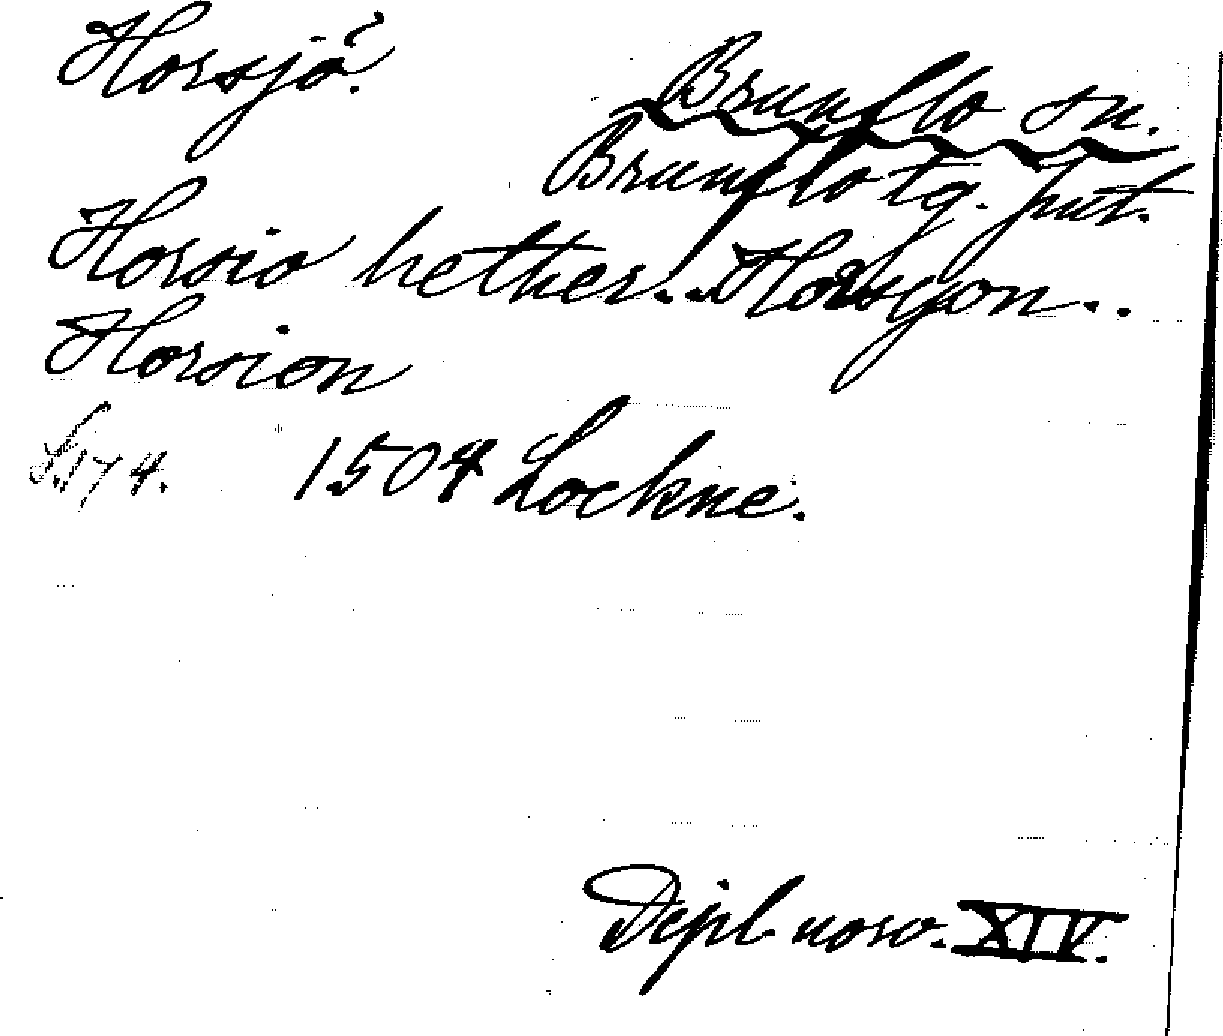 Horsjö?
Brunflo sn.
Brunflo tg. Jmt.
Horsio hether.. Horsyon..
Horsion
S. 174. 1504 Lockne.
Dipl norv. XIV.